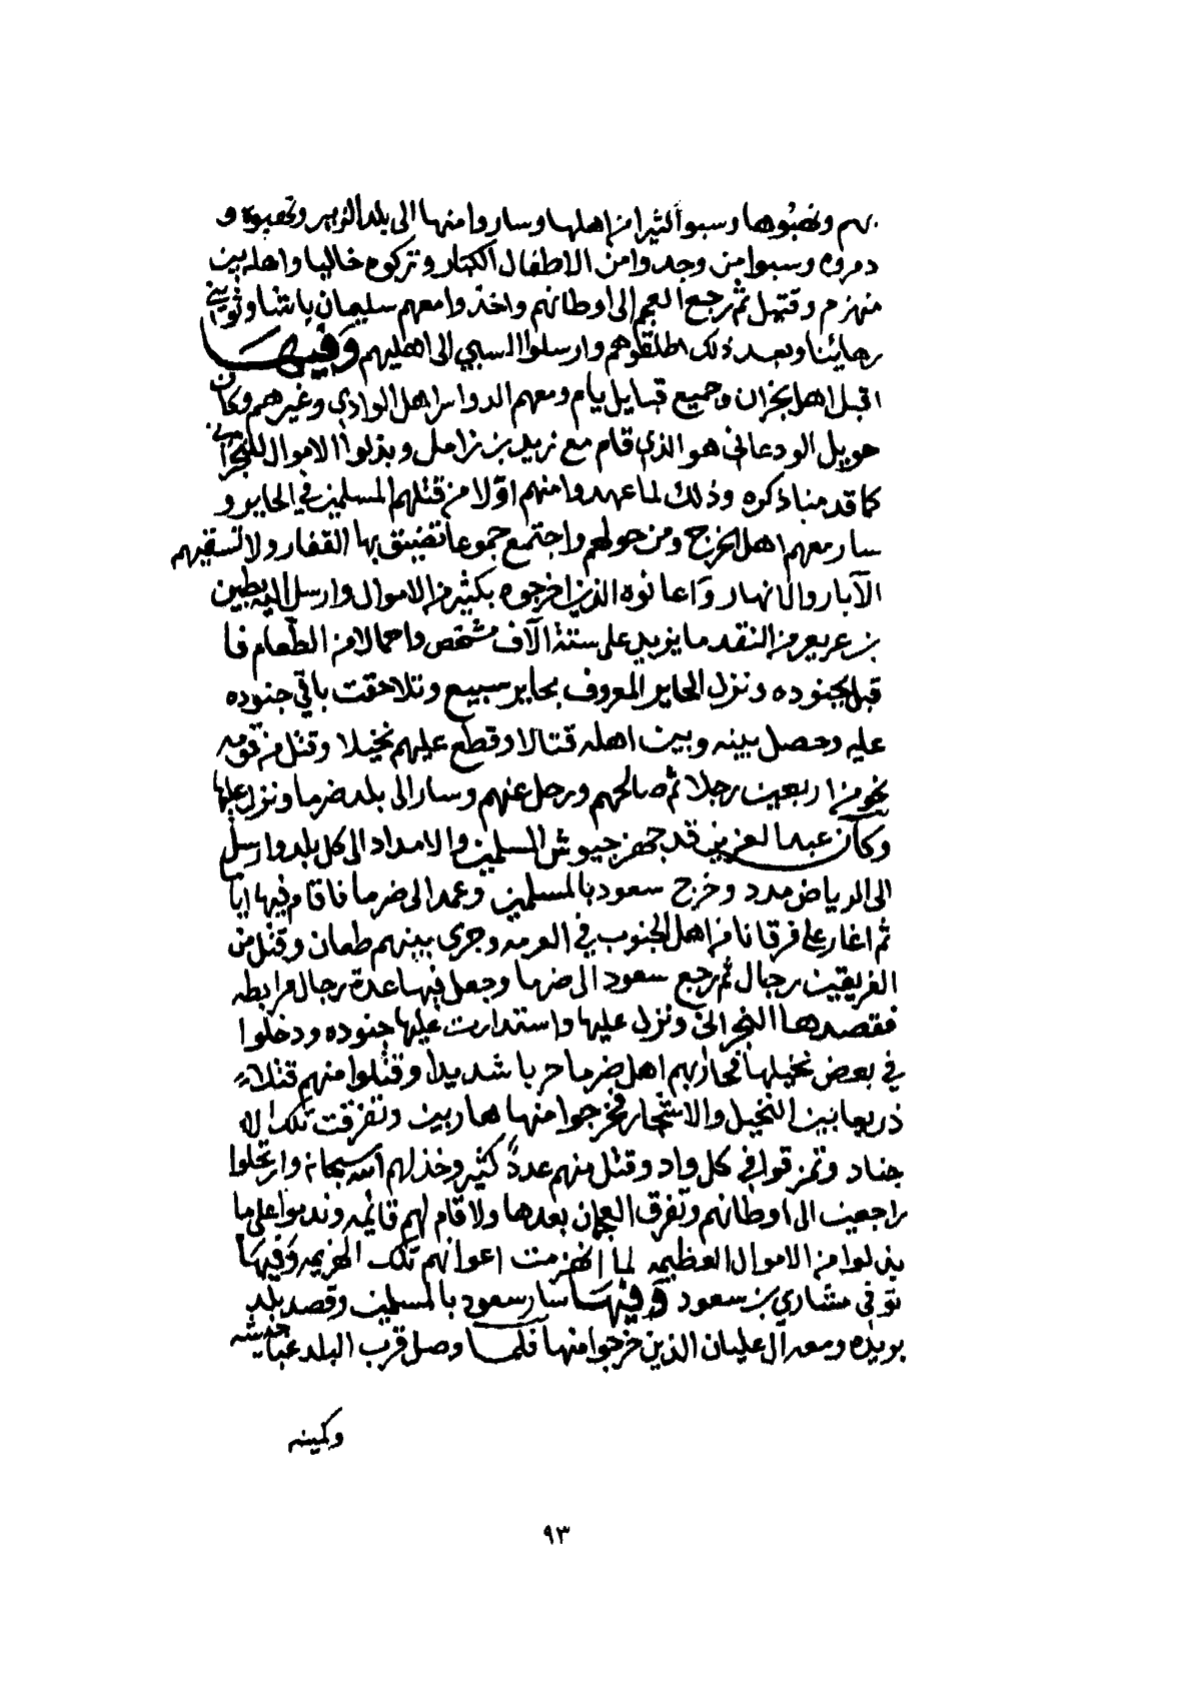 بهم ونهبوها وسبوا كثيرا من اهلها وساروا منها الى بلد الزبير ونهبوه و
دمروه وسبوا من وجدوا من الاطفال الكبار وتركوه خاليا واهله بين
منهزم وقتيل ثم رجع العجم الى اوطانهم واخذوا معهم سليمان باشا وثويني
رهائنا وبعد ذلك اطلقوهم وارسلوا السبي الى اهليهم وفيها
اقبل اهل نجران وجميع قبايل يام ومعهم الدواسر اهل الوادي وغيرهم وكان
حويل الودعاني هو الذي قام مع زيد بن زامل وبذلوا الاموال للنجراني
كما قدمنا ذكره وذلك لما عهدوا منهم اولا من قتلهم المسلمين في الحاير و
سار معهم اهل الخرج ومن حولهم واجتمع جموعا تضيق بها القفار ولا تسقيهم
الآبار والانهار واعانوه الذين اخرجوه بكثير من الاموال وارسل اليه بطين
بن عريعر من النقد ما يزيد على ستة الآف مشخص واحمالا من الطعام فا
قبل بجنوده ونزل الحاير المعروف بحاير سبيع وتلاحقت باقي جنوده
عليه وحصل بينه وبين اهله قتالا وقطع عليهم نخيلا وقتل من قومه
نحو من اربعين رجلا ثم صالحهم ورحل عنهم وسار الى بلد ضرما ونزل عليها
وكان عبد العزيز قد جهز جيوش المسلمين والامداد الى كل بلد وارسل
الى الرياض مدد وخرج سعود بالمسلمين وعمد الى ضرما فاقام فيها ايا
ثم اغار على فرقانا من اهل الجنوب في العرمه وجرى بينهم طعان وقتل من
الفريقين رجال ثم رجع سعود الى ضرما وجعل فيها عدة رجال مرابطه
فقصدها النجراني ونزل عليها واستدارت عليها جنوده ودخلوا
في بعض نخيلها فحاربهم اهل ضرما حربا شديدا وقتلوا منهم قتلاً
ذريعا بين النخيل والاشجار فخرجوا منها هاربين وتفرقت تلك الا
جناد وتمزقوا في كل واد وقتل منهم عددٌ كثير وخذلهم الله سبحانه وارتحلوا
راجعين الى اوطانهم وتفرق العجمان بعدها ولا قام لهم قائمه وندموا على ما
بذلوا من الاموال العظيمه لما انهزمت اعوانهم تلك الهزيمه وفيها
توفي مشاري بن سعود وفيها سار سعود بالمسلمين وقصد بلد
بريده ومعه آل عليان الذين خرجوا منها فلما وصل قرب البلد عبا جيشه
وكمينه
٩٣